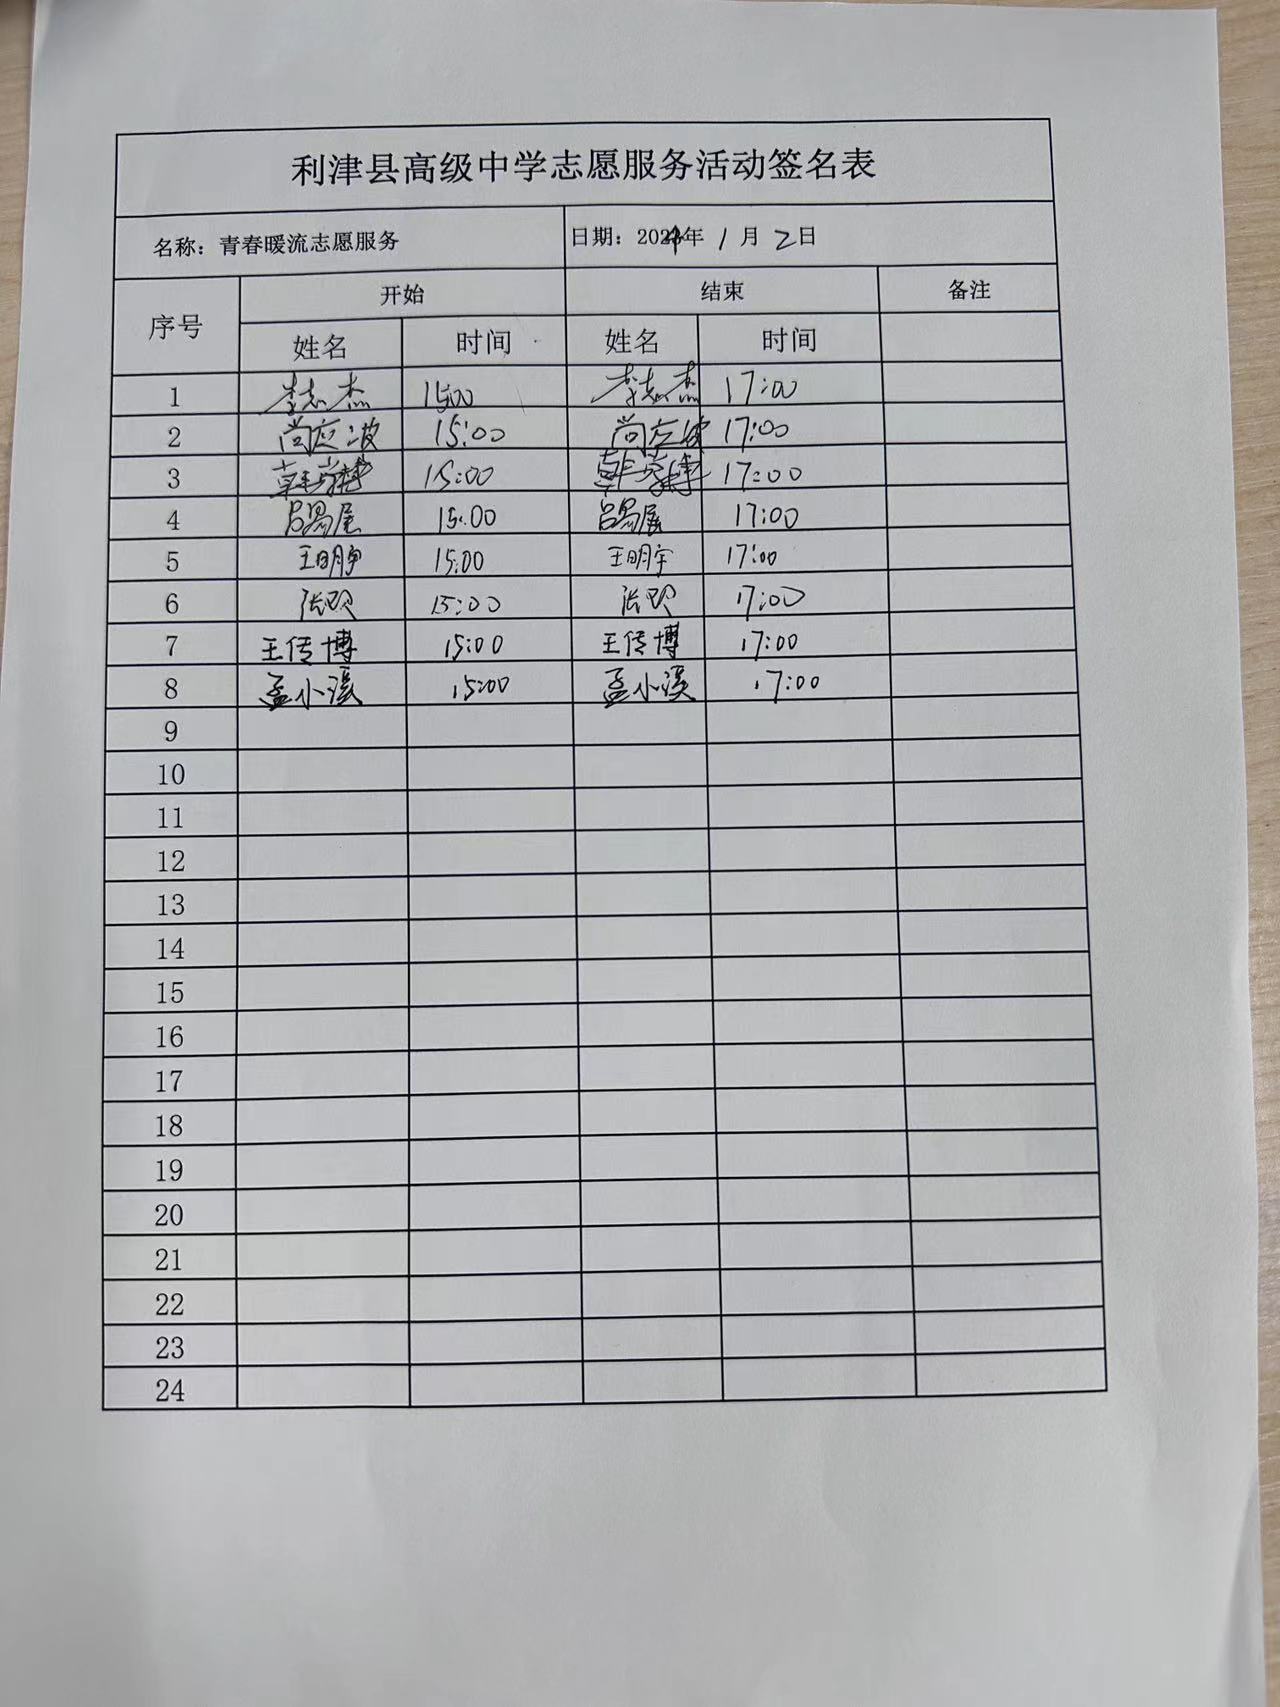 利津县高级中学志愿服务活动签名表
名称：青春暖流志愿服务 日期：2024年 1月 2日
序号 开始 结束 备注
姓名 时间 姓名 时间
1 李志杰 15:00 李志杰 17:00
2 尚应波 15:00 尚应波 17:00
3 15:00 17:00
4 15:00 17:00
5 王明宇 15:00 王明宇 17:00
6 15:00 17:00
7 王传博 15:00 王传博 17:00
8 孟小溪 15:00 孟小溪 17:00
9
10
11
12
13
14
15
16
17
18
19
20
21
22
23
24